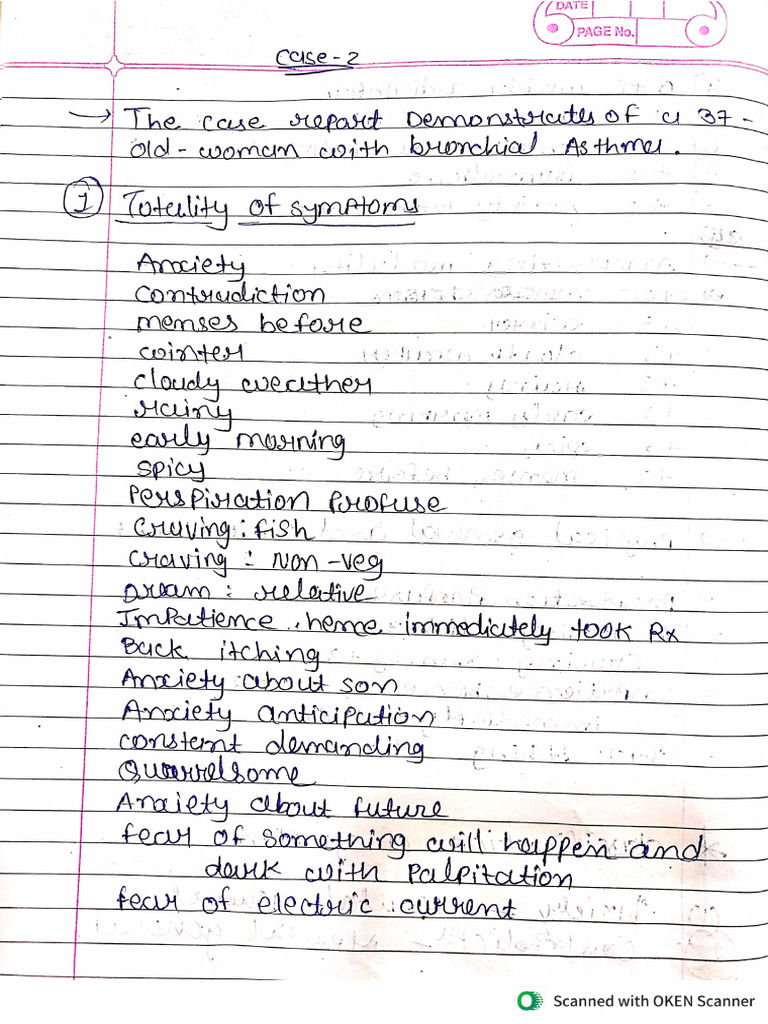 DATE
PAGE No.
Case-2
→ The case repart Demonstrates of a 37-
old-woman with bronchial Asthma.
1 Totality of symptoms
Anxiety
contradiction
menses before
winter
cloudy weather
rainy
early morning
spicy
Perspiration Profuse
Craving: fish
craving : Non-veg
Dream : relative
Impatience, heme immediately took Rx
Back itching
Anxiety about son
Anxiety anticipation
constent demanding
Quarrelsome
Anxiety about future
fear of something will happen and
dark with Palpitation
fear of electric current
Scanned with OKEN Scanner